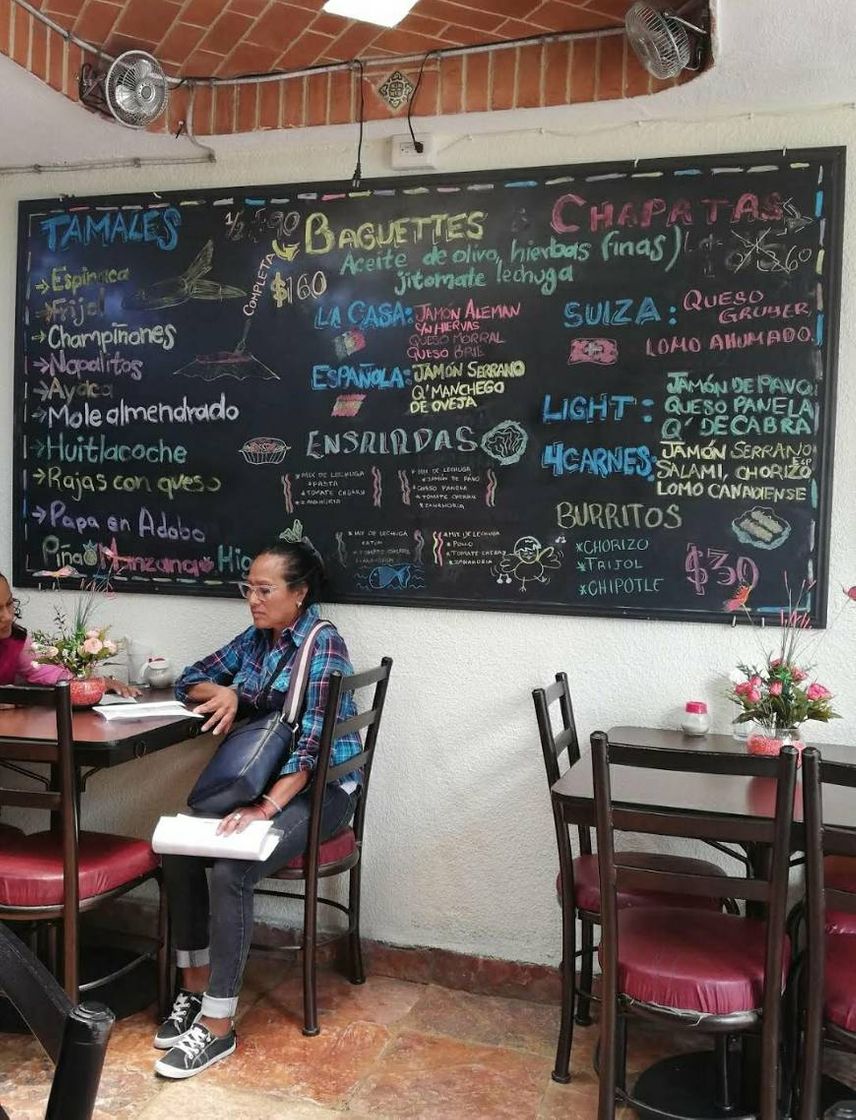 TAMALES
→ Espinaca
→ Frijol
→ Champiñones
→ Nopalitos
→ Ayaca
→ Mole almendrado
→ Huitlacoche
→ Rajas con queso
→ Papa en Adobo
Piña Manzana Higo
1/2 $90
COMPLETA
$160
BAGUETTES
Aceite de olivo, hierbas finas)
jitomate lechuga
LA CASA: JAMÓN ALEMAN
S/N HIERVAS
QUESO MORRAL
QUESO BRIE
ESPAÑOLA: JAMÓN SERRANO
Q' MANCHEGO
DE OVEJA
ENSALADAS
* MIX DE LECHUGA
* PASTA
* TOMATE CHERRY
* ZANAHORIA
* MIX DE LECHUGA
* JAMÓN DE PAVO
* QUESO PANELA
* TOMATE CHERRY
* ZANAHORIA
* MIX DE LECHUGA
* ATÚN
* TOMATE CHERRY
* ZANAHORIA
* MIX DE LECHUGA
* POLLO
* TOMATE CHERRY
* ZANAHORIA
CHAPATAS
60
SUIZA: QUESO
GRUBER,
LOMO AHUMADO.
LIGHT: JAMÓN DE PAVO
QUESO PANELA
Q' DE CABRA
4 CARNES: JAMÓN SERRANO
SALAMI, CHORIZO ESP
LOMO CANADIENSE
BURRITOS
* CHORIZO
* FRIJOL
* CHIPOTLE
$30